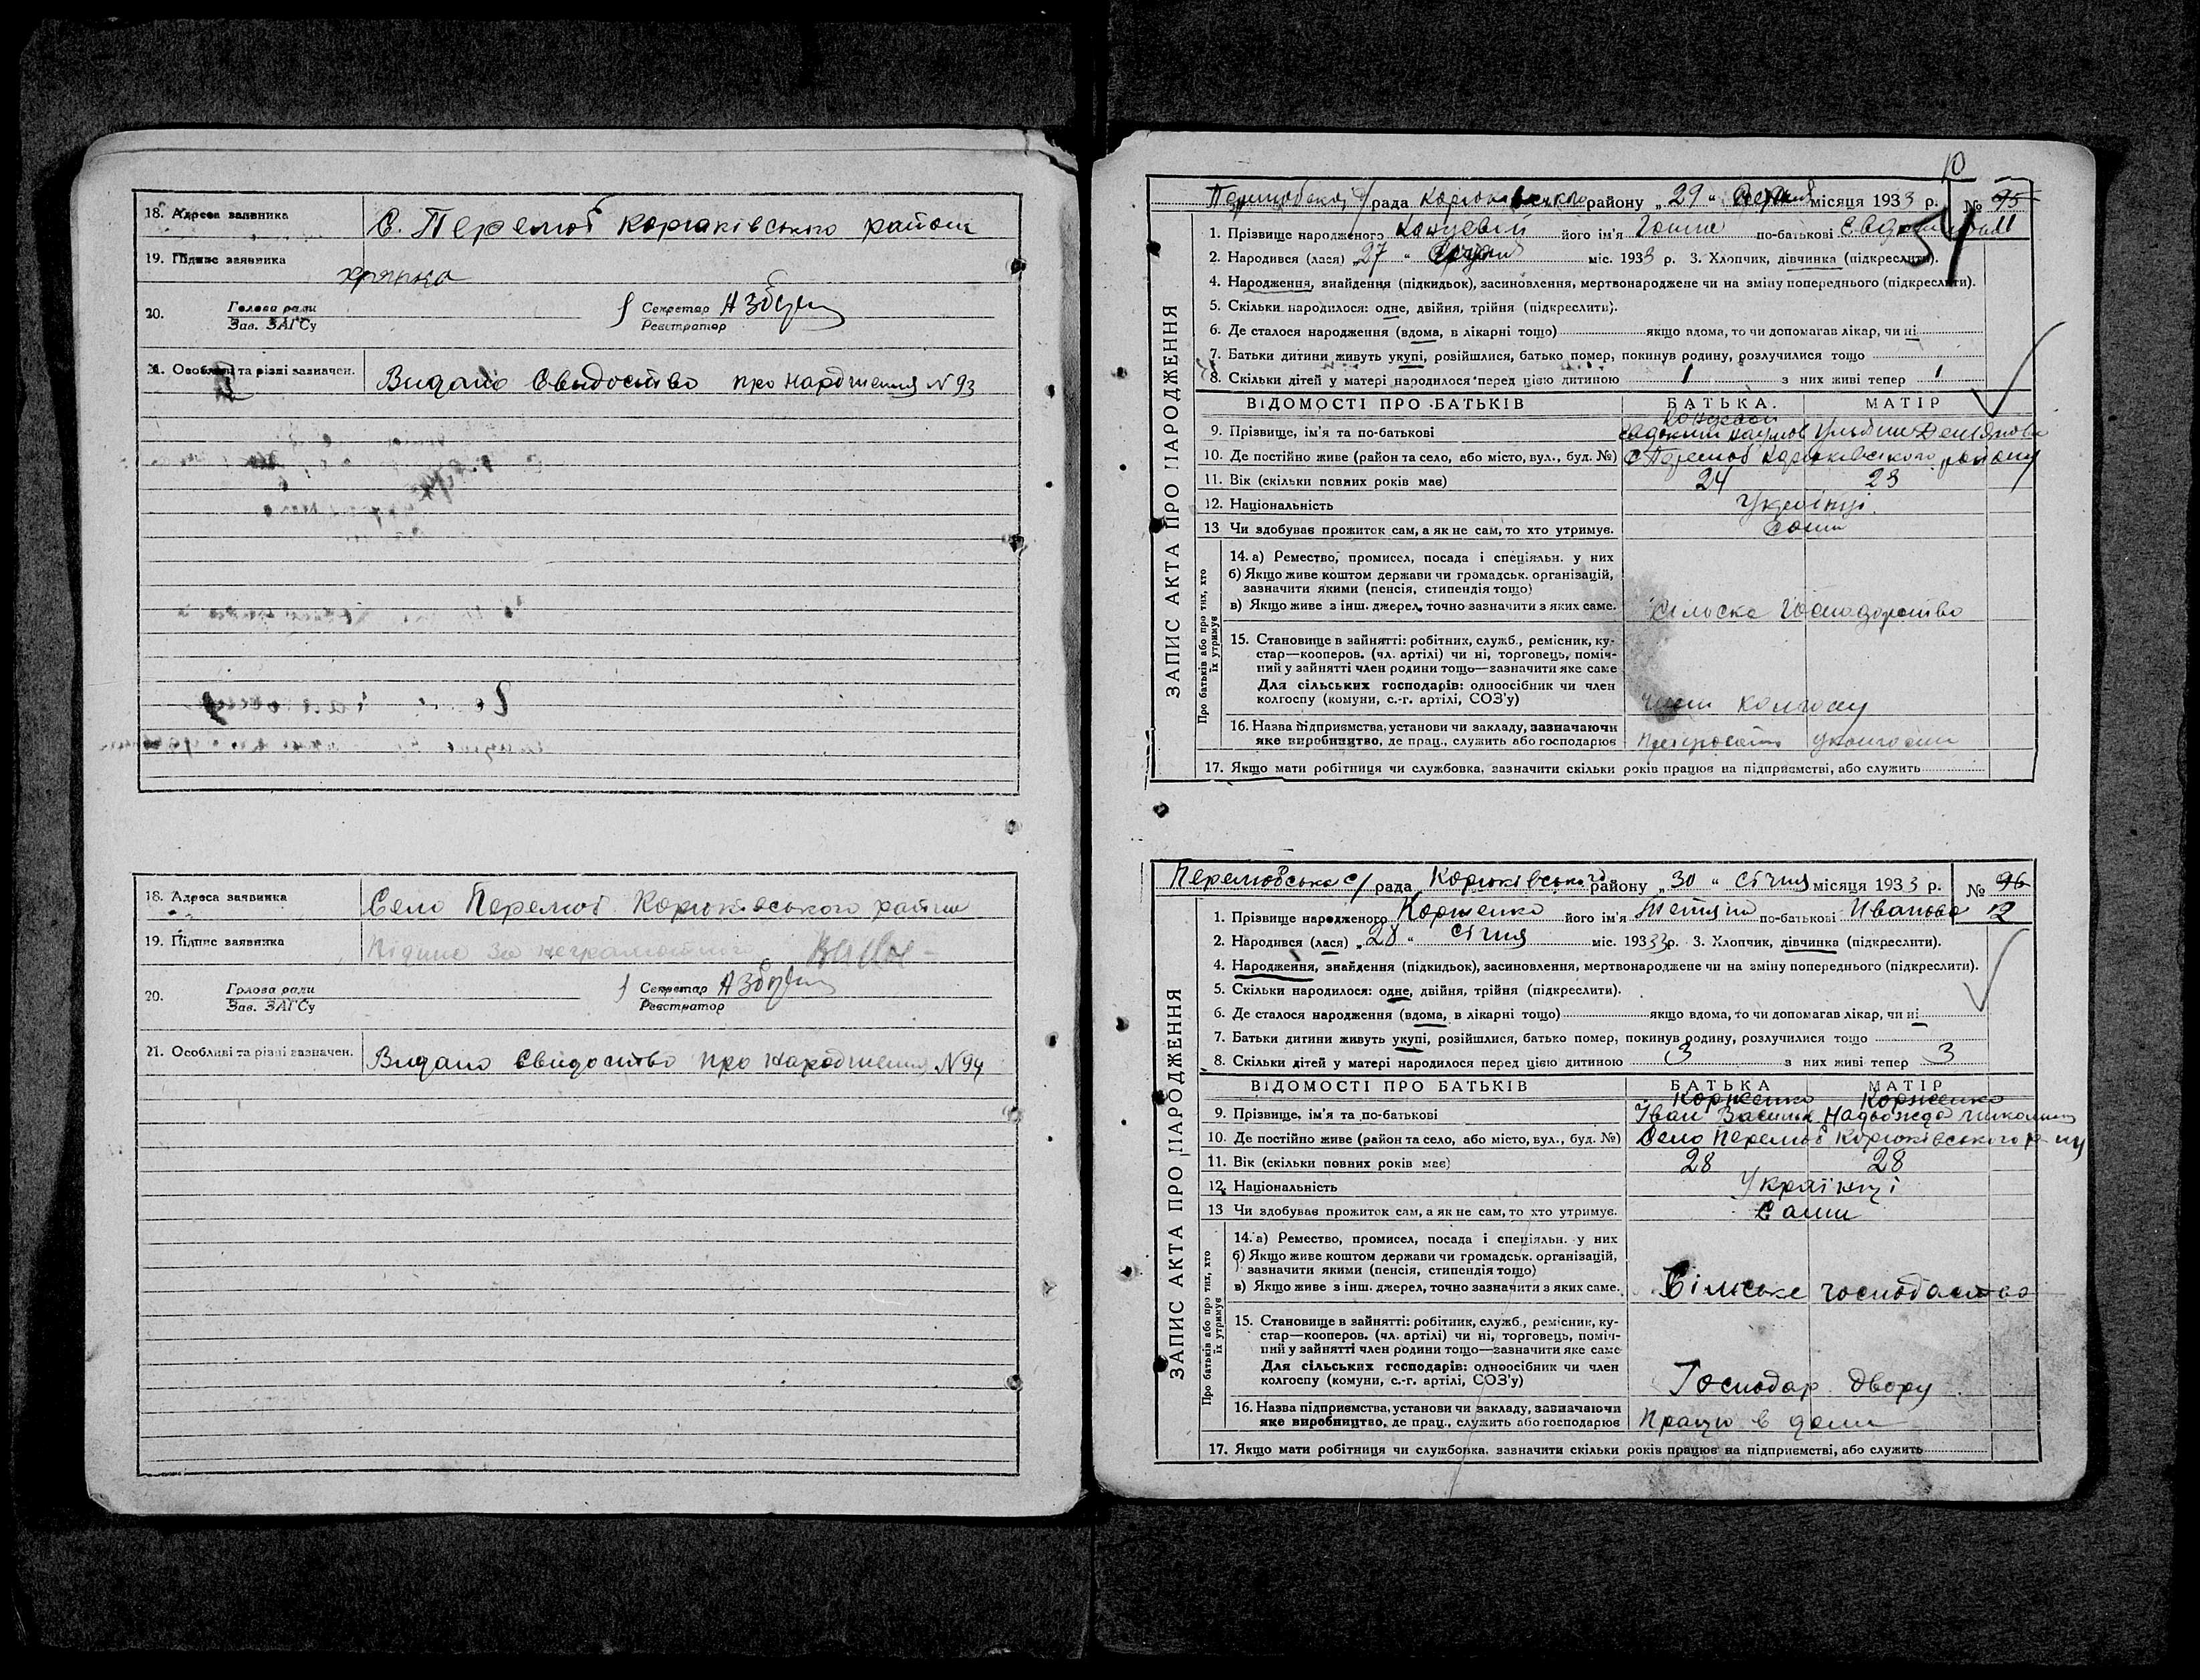 18. Адреса заявника С. Перелюб Корюківського район
19. Підпис заявника
20. Голова ради Зав. ЗАГСу Секретар Реєстратор
21. Особливі та різні зазначен. Видано Свидоство про народження N 93
18. Адреса заявника Село Перелюб Корюківського район
19. Підпис заявника Підпис за неграмотних
20. Голова ради Зав. ЗАГСу Секретар Реєстратор
21. Особливі та різні зазначен. Видано Свидоство про народження N 94
10
ЗАПИС АКТА ПРО НАРОДЖЕННЯ
с/рада району „29“ місяця 1933 р. № 95
11
1. Прізвище народженого його ім'я по-батькові
2. Народився (лася) „27“ міс. 1933 р. 3. Хлопчик, дівчинка (підкреслити).
4. Народження, знайдення (підкидьок), засиновлення, мертвонароджене чи на зміну попереднього (підкреслити).
5. Скільки народилося: одне, двійня, трійня (підкреслити).
6. Де сталося народження (вдома, в лікарні тощо) якщо вдома, то чи допомагав лікар, чи ні
7. Батьки дитини живуть укупі, розійшлися, батько помер, покинув родину, розлучилися тощо
8. Скільки дітей у матері народилося перед цією дитиною 1 з них живі тепер 1
ВІДОМОСТІ ПРО БАТЬКІВ БАТЬКА. МАТІР
9. Прізвище, ім'я та по-батькові
10. Де постійно живе (район та село, або місто, вул., буд. №) С Перелюб Корюківського району
11. Вік (скільки повних років має) 24 23
12. Національність Українці
13 Чи здобуває прожиток сам, а як не сам, то хто утримує. Сами
Про батьків або про тих, хто їх утримує
14. а) Ремество, промисел, посада і спеціяльн. у них
б) Якщо живе коштом держави чи громадськ. організацій,
зазначити якими (пенсія, стипендія тощо)
в) Якщо живе з інш. джерел, точно зазначити з яких саме. Сільске господарство
15. Становище в зайнятті: робітник, служб., ремісник, ку-
стар—кооперов. (чл. артілі) чи ні, торговець, поміч-
ний у зайнятті член родини тощо—зазначити яке саме
Для сільських господарів: одноосібник чи член
колгоспу (комуни, с.-г. артілі, СОЗ'у) член колгоспу
16. Назва підприємства, установи чи закладу, зазначаючи
яке виробництво, де прац., служить або господарює
17. Якщо мати робітниця чи службовка, зазначити скільки років працює на підприємстві, або служить
ЗАПИС АКТА ПРО НАРОДЖЕННЯ
Перелюбська с/рада Корюківського району „30“ січня місяця 1933 р. № 96
12
1. Прізвище народженого Корженко його ім'я Тетяна по-батькові Иванова
2. Народився (лася) „28“ січня міс. 1933 р. 3. Хлопчик, дівчинка (підкреслити).
4. Народження, знайдення (підкидьок), засиновлення, мертвонароджене чи на зміну попереднього (підкреслити).
5. Скільки народилося: одне, двійня, трійня (підкреслити).
6. Де сталося народження (вдома, в лікарні тощо) якщо вдома, то чи допомагав лікар, чи ні
7. Батьки дитини живуть укупі, розійшлися, батько помер, покинув родину, розлучилися тощо
8. Скільки дітей у матері народилося перед цією дитиною 3 з них живі тепер 3
ВІДОМОСТІ ПРО БАТЬКІВ БАТЬКА МАТІР
Корженко Корженко
9. Прізвище, ім'я та по-батькові Іван Надьожда
10. Де постійно живе (район та село, або місто, вул., буд. №) Село Перелюб Корюківського р-ну
11. Вік (скільки повних років має) 28 28
12. Національність Українці
13 Чи здобуває прожиток сам, а як не сам, то хто утримує. Сами
Про батьків або про тих, хто їх утримує
14. а) Ремество, промисел, посада і спеціяльн. у них
б) Якщо живе коштом держави чи громадськ. організацій,
зазначити якими (пенсія, стипендія тощо)
в) Якщо живе з інш. джерел, точно зазначити з яких саме. Сільське
15. Становище в зайнятті: робітник, служб., ремісник, ку-
стар—кооперов. (чл. артілі) чи ні, торговець, поміч-
ний у зайнятті член родини тощо—зазначити яке саме
Для сільських господарів: одноосібник чи член
колгоспу (комуни, с.-г. артілі, СОЗ'у) Господар двору
16. Назва підприємства, установи чи закладу, зазначаючи
яке виробництво, де прац., служить або господарює Працю в доми
17. Якщо мати робітниця чи службовка, зазначити скільки років працює на підприємстві, або служить